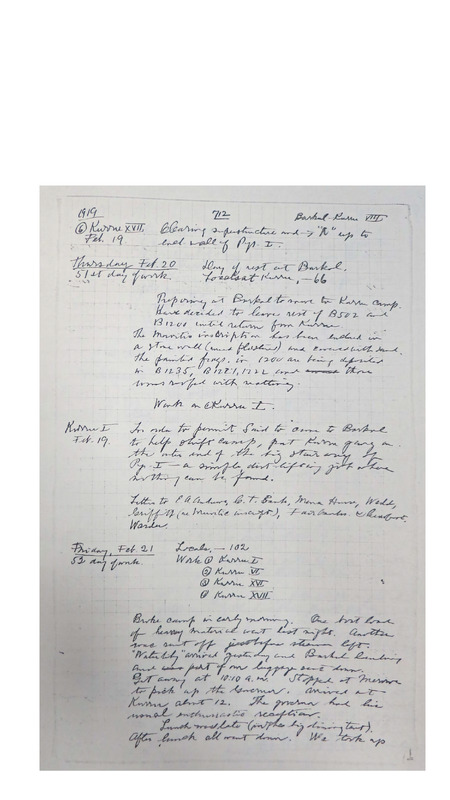 1919
712
Barkal-Kurru VIII
⑥ Kurru XVII. Clearing superstructure and → "N" up to
Feb. 19 end wall of Pyr. I.
Thursday Feb 20 Day of rest at Barkal.
51st day of work. Locals at Kurru, — 66
Preparing at Barkal to move to Kurru camp.
Have decided to leave rest of B502 and
B1200 until return from Kurru.
The Meroitic inscription has been enclosed in
a stone wall (mud plastered) and covered with sand.
The painted frags. in 1200 are being deposited
in B1235, B1221, 1222 and these
rooms roofed with matting.
Work on Kurru I.
Kurru I In order to permit Said to come to Barkal
Feb. 19. to help shift camp, put Kurru gang on
the outer end of the big stairway of
Pyr. I — a simple dirt-lifting job where
nothing can be found.
Letters to C. T. Bank, Wadd,
Griffith (as Meroitic inscript), Fairbanks
Friday, Feb. 21 Locals, — 102
52 day of work. Work @ Kurru I
@ Kurru VI
@ Kurru XVI
@ Kurru XVII
Broke camp in early morning. One boat load
of heavy material went last night. Another
was sent off just before steamer left.
arrived yesterday and Barkal landing
and part of our luggage sent down.
Got away at 10:10 a.m. Stopped at Merowe
to pick up the Governor. Arrived at
Kurru about 12. The governor had his
usual enthusiastic reception.
Lunch (in the big dining tent).
After lunch all went down. We took up